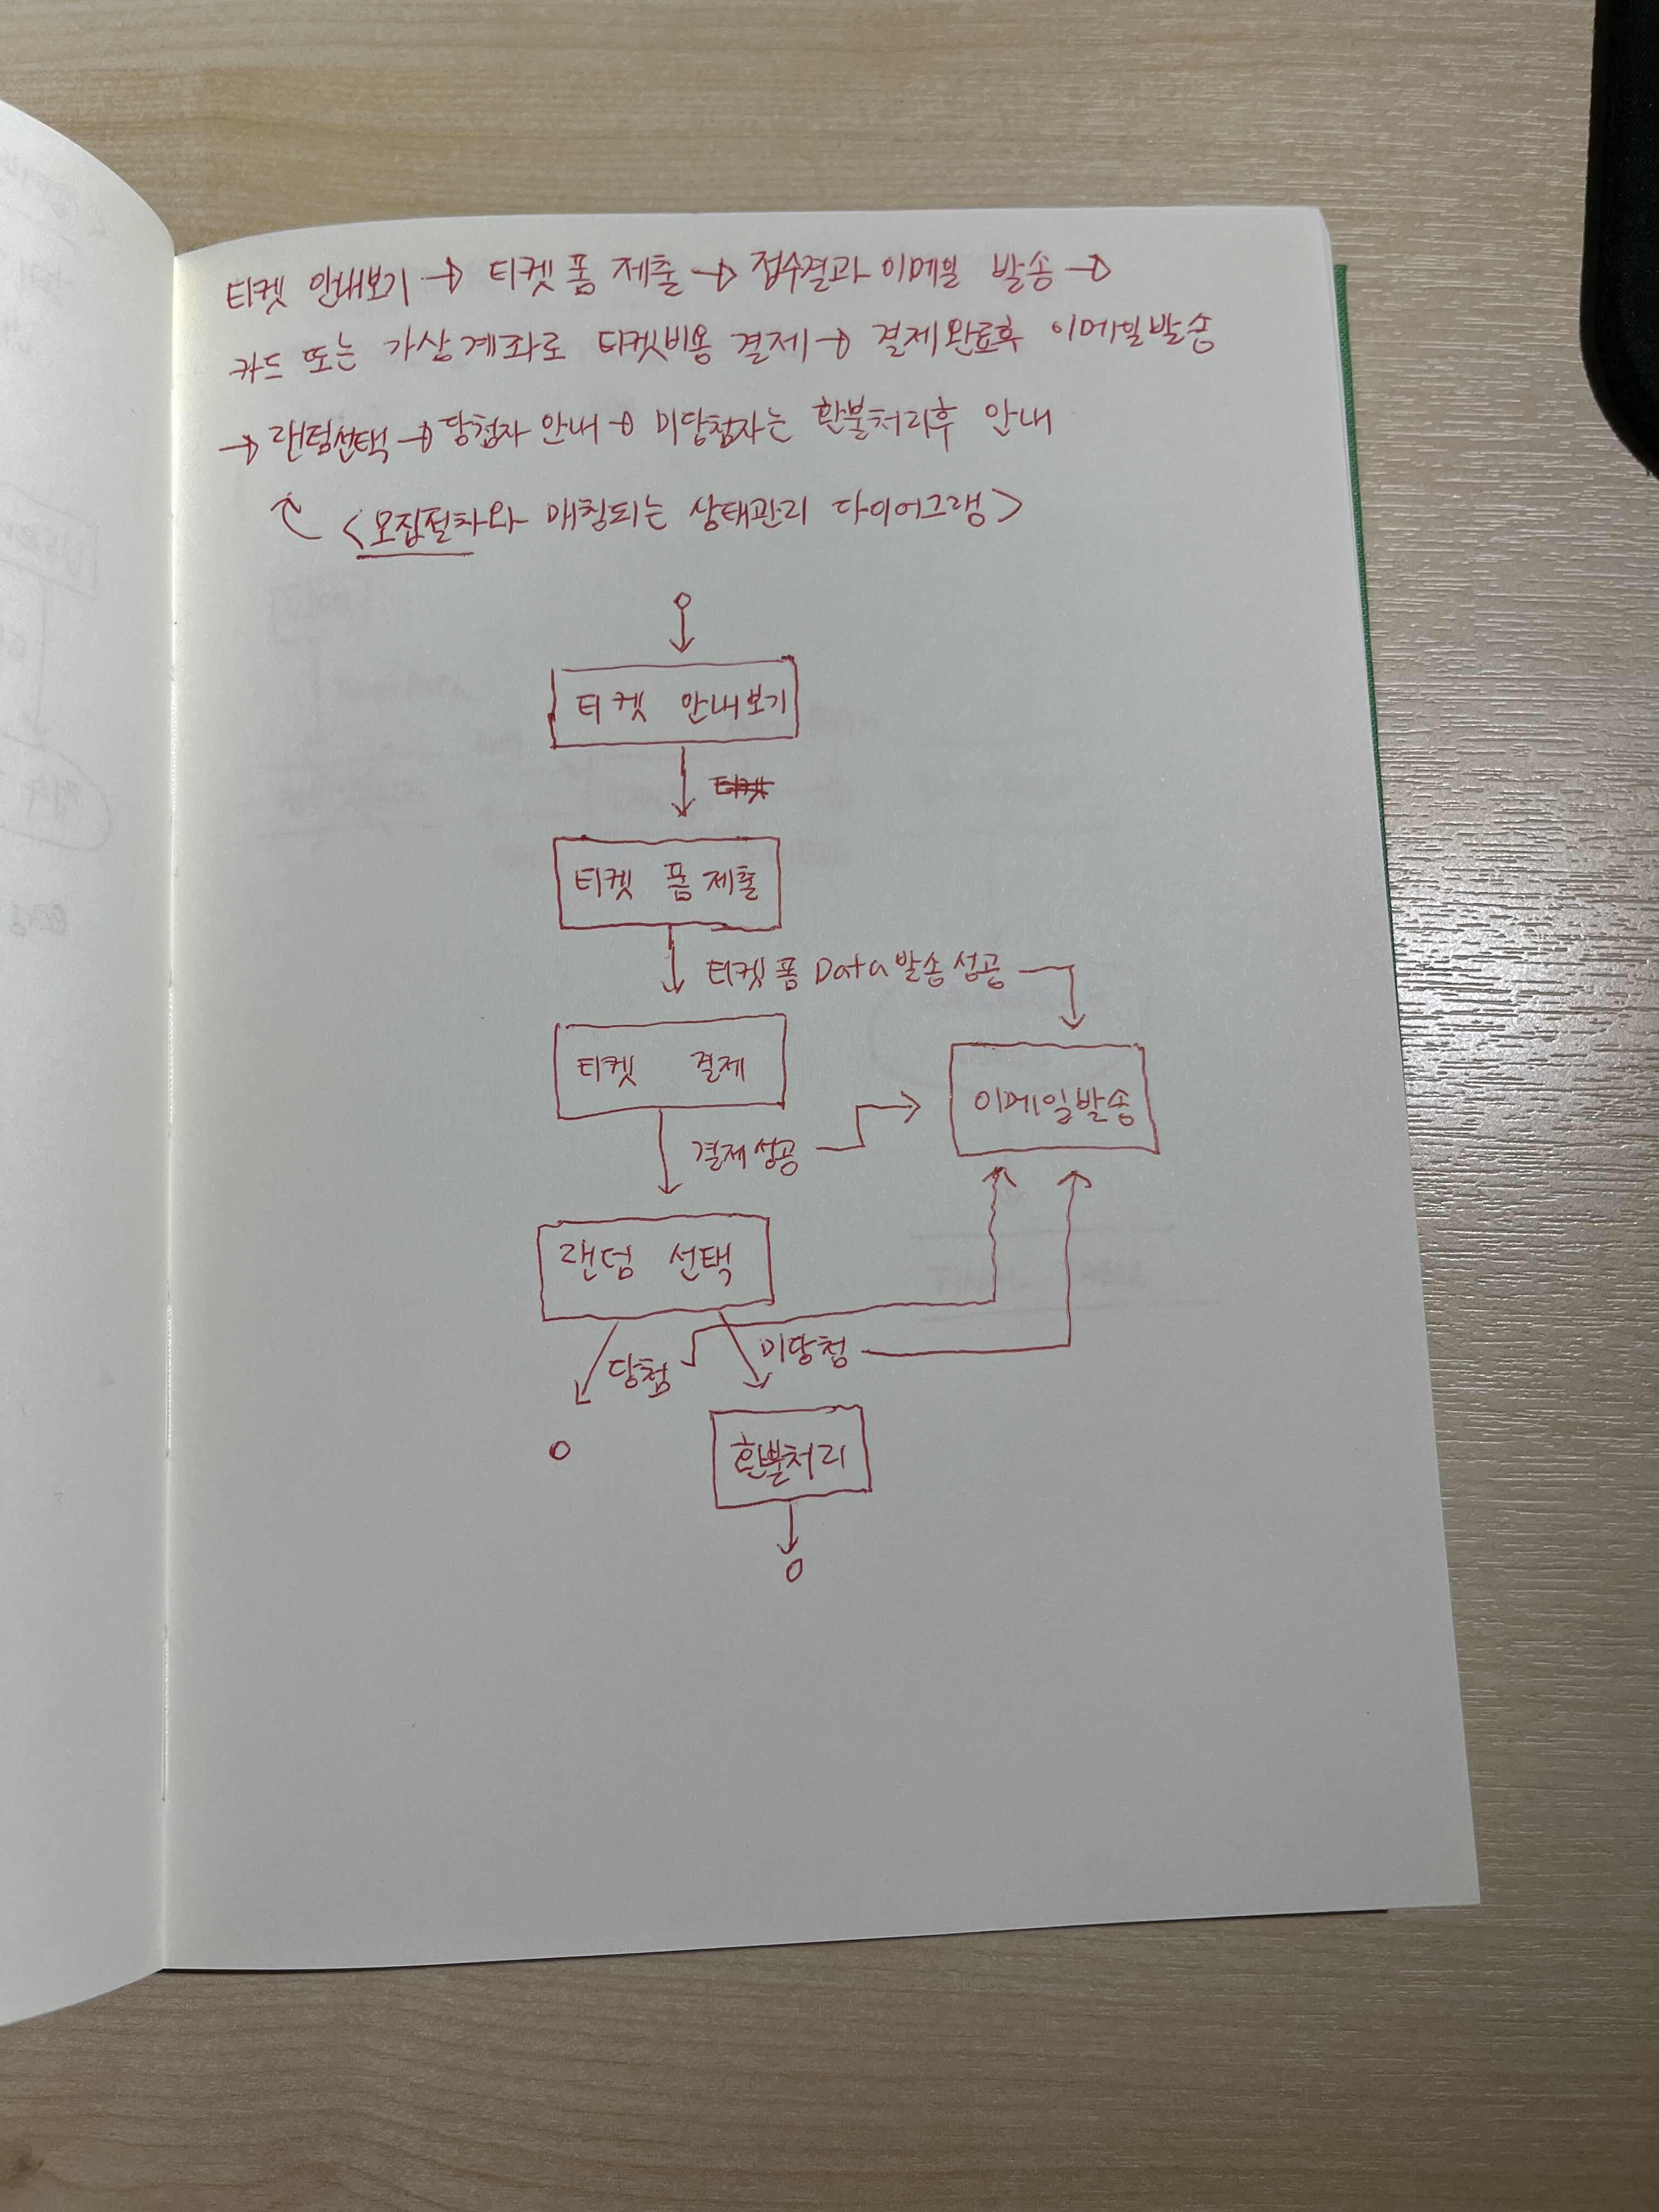 티켓 안내보기 → 티켓 폼 제출 → 접수결과 이메일 발송 →
카드 또는 가상계좌로 티켓비용 결제 → 결제완료후 이메일발송
→ 랜덤선택 → 당첨자 안내 → 미당첨자는 환불처리후 안내
<모집절차와 매칭되는 상태관리 다이어그램>
티켓 안내보기
티켓
티켓 폼 제출
티켓 폼 Data 발송 성공
티켓 결제
이메일발송
결제 성공
랜덤 선택
당첨
미당첨
환불처리